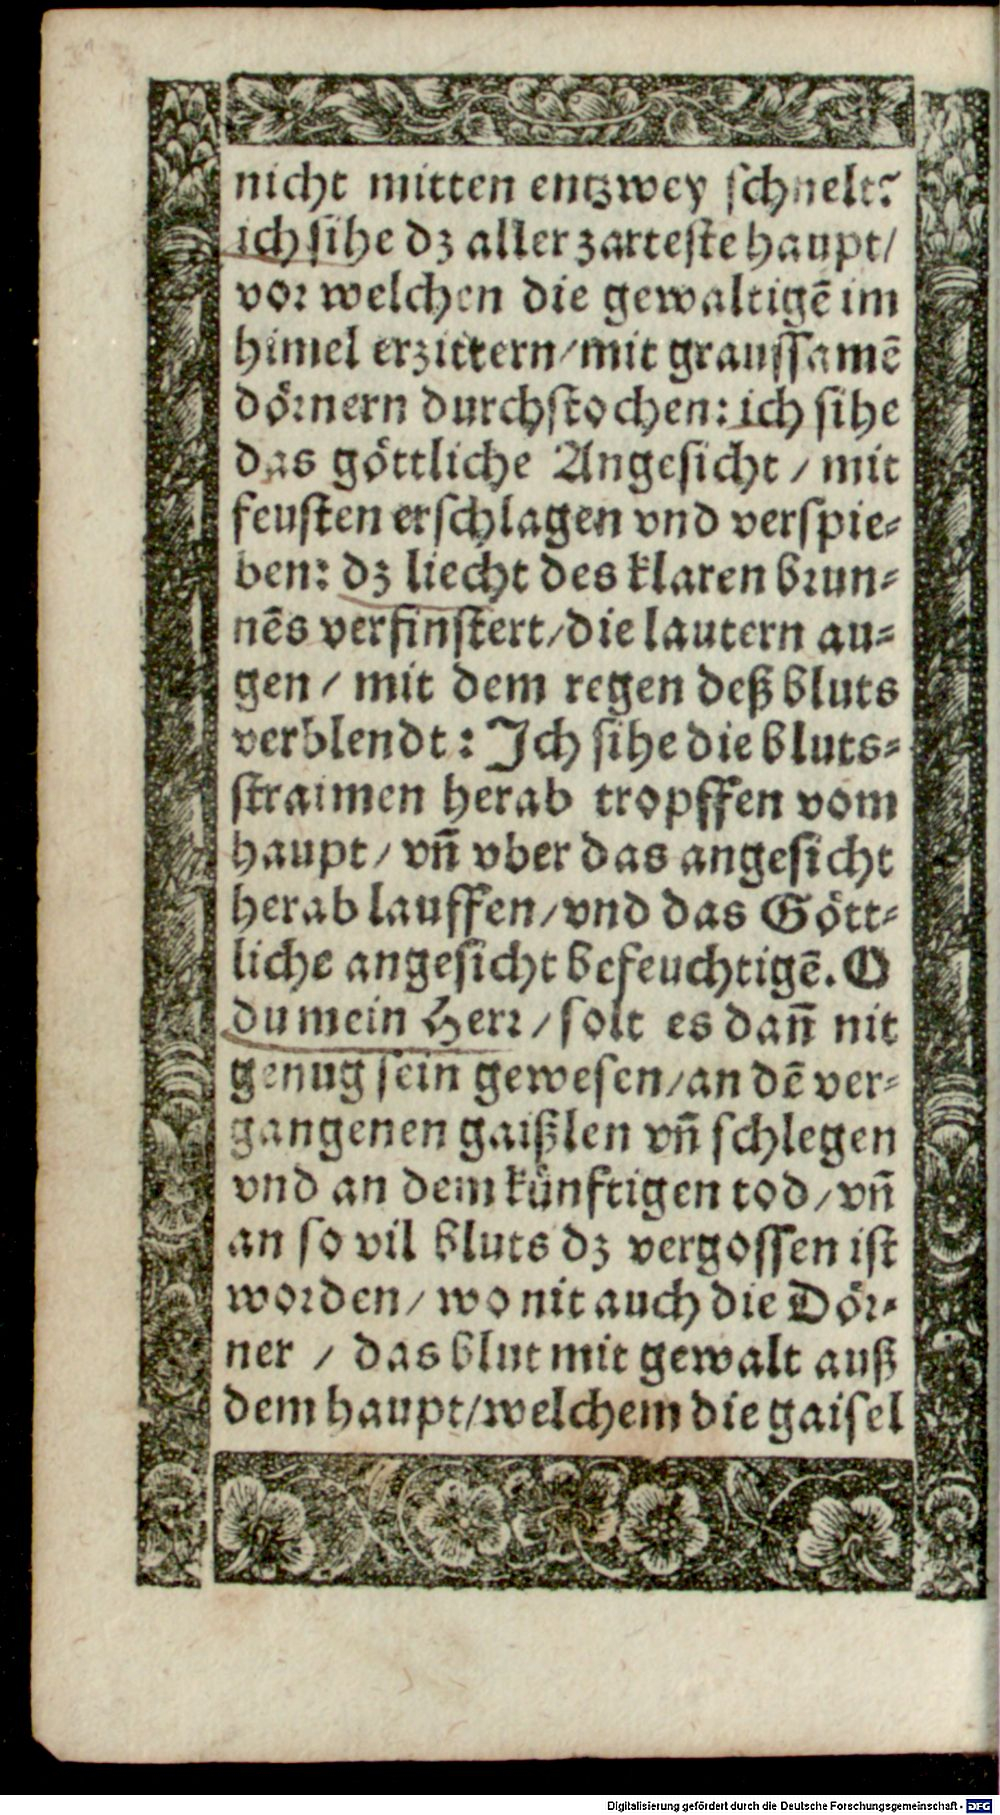 nicht mitten entzwey schnelt?
ich sihe dz aller zarteste haupt/
vor welchen die gewaltigē im
himel erzittern/mit graussamē
dörnern durchstochen: ich sihe
das göttliche Angesicht / mit
feusten erschlagen vnd verspie⸗
ben: dz liecht des klaren brun⸗
nēs verfinstert/die lautern au⸗
gen / mit dem regen deß bluts
verblendt: Ich sihe die bluts⸗
straimen herab tropffen vom
haupt/ vñ vber das angesicht
herab lauffen/vnd das Gött⸗
liche angesicht befeuchtigē. O
du mein Herr / solt es dañ nit
genug sein gewesen/an dē ver⸗
gangenen gaißlen vñ schlegen
vnd an dem künftigen tod/vñ
an so vil bluts dz vergossen ist
worden/ wo nit auch die Dör⸗
ner / das blut mit gewalt auß
dem haupt/welchem die gaisel
Digitalisierung gefördert durch die Deutsche Forschungsgemeinschaft - DFG